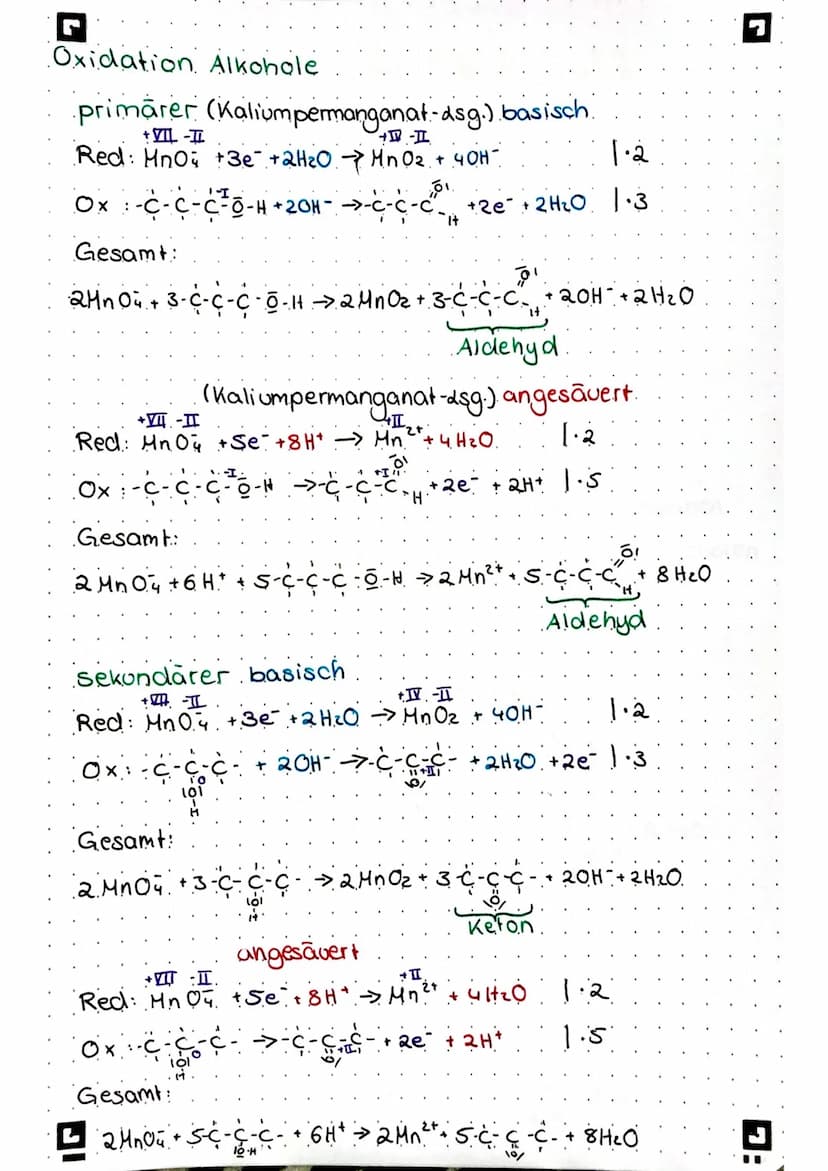 Oxidation Alkohole
primärer (Kaliumpermanganat-Lsg.) basisch
+VII -II +IV -II
Red: MnO₄⁻ +3e⁻ +2H₂O → MnO₂ + 4OH⁻ |·2
Ox : -C-C-C⁻ᴵ-O-H +2OH⁻ → -C-C-C=O -H +2e⁻ + 2H₂O |·3
Gesamt:
2MnO₄⁻ + 3-C-C-C-O-H → 2MnO₂ + 3-C-C-C=O -H + 2OH⁻ + 2H₂O
Aldehyd
(Kaliumpermanganat-Lsg.) angesäuert
+VII -II +II
Red: MnO₄⁻ +5e⁻ +8H⁺ → Mn²⁺ + 4H₂O |·2
Ox : -C-C-C⁻ᴵ-O-H → -C-C-C⁺ᴵ=O -H +2e⁻ + 2H⁺ |·5
Gesamt:
2MnO₄⁻ +6H⁺ + 5-C-C-C-O-H → 2Mn²⁺ + 5-C-C-C=O -H + 8H₂O
Aldehyd
sekundärer basisch
+VII -II +IV -II
Red: MnO₄⁻ +3e⁻ +2H₂O → MnO₂ + 4OH⁻ |·2
Ox: -C-C-C- + 2OH⁻ → -C-C-C- +2H₂O +2e⁻ |·3
0 |O| +II O
H
Gesamt:
2MnO₄⁻ +3-C-C-C- → 2MnO₂ + 3-C-C-C- + 2OH⁻ + 2H₂O
|O| O
H
Keton
angesäuert
+VII -II +II
Red: MnO₄⁻ +5e⁻ + 8H⁺ → Mn²⁺ + 4H₂O |·2
Ox : -C-C-C- → -C-C-C- + 2e⁻ + 2H⁺ |·5
|O| 0 O +II
H
Gesamt:
2MnO₄⁻ + 5-C-C-C- + 6H⁺ → 2Mn²⁺ + 5-C-C-C- + 8H₂O
|O-H O